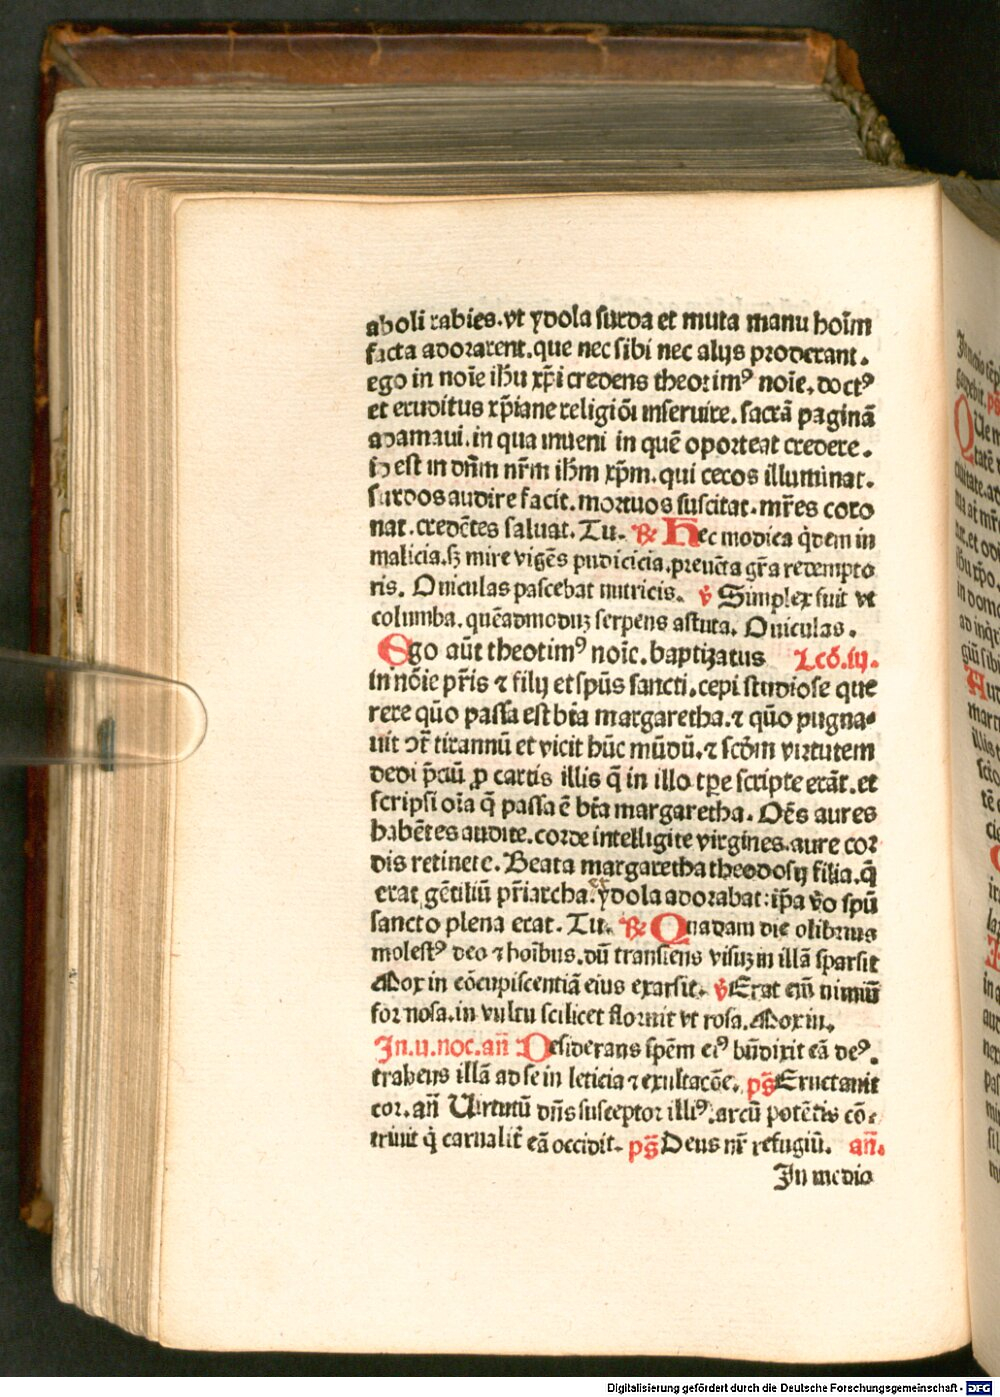 aboli rabies. vt ydola surda et muta manu hoīm
facta adorarent. que nec sibi nec alijs proderant.
ego in noīe ihū xp̄i credens theotimꝰ noīe. doctꝰ
et eruditus xp̄iane religiōi inseruire. sacrā paginā
adamaui. in qua inueni in quē oporteat credere.
est in dn̄m nr̄m ihm̄ xp̄m. qui cecos illuminat.
surdos audire facit. mortuos suscitat. mr̄es coro
nat. credētes saluat. Tu. ℟ Hec modica q̄dem in
malicia. sꝫ mire vigēs pudicicia. preuēta gr̄a redempto
ris. Ouiculas pascebat nutricis. ℣ Simplex fuit vt
columba. quēadmoduꝫ serpens astuta. Ouiculas.
Ego aūt theotimꝰ noīe. baptizatus Lcō. iij.
in nōie pr̄is ⁊ filij et spūs sancti. cepi studiose que
rere quō passa est bt̄a margaretha. ⁊ quō pugna
uit ↄr̄ tirannū et vicit hūc mūdū. ⁊ scdm̄ virtutem
dedi p̄ciū ꝓ cartis illis q̄ in illo tp̄e scripte erāt. et
scripsi oīa q̄ passa ē bt̄a margaretha. Oēs aures
habētes audite. corde intelligite virgines. aure cor
dis retinete. Beata margaretha theodosij filia. q̄
erat gētiliū pr̄iarcha. et ydola adorabat: ip̄a v̄o spū
sancto plena erat. Tu. ℟ Quadam die olibrius
molestꝰ deo ⁊ hoībus. dū transiens visuꝫ in illā sparsit
Mox in cōcupiscentiā eius exarsit. ℣ Erat em̄ nimiū
formosa. in vultu scilicet floruit vt rosa. Mox in.
In. ij. noc. an̄ Desiderans spēm eiꝰ bn̄dixit eā deꝰ.
trahens illā ad se in leticia ⁊ exultacōe. ps̄ Eructauit
cor. an̄ Uirtutū dn̄s susceptor illiꝰ. arcū potētis cō-
triuit q̄ carnalit̄ eā occidit. ps̄ Deus nr̄ refugiū. an̄.
In medio
Digitalisierung gefördert durch die Deutsche Forschungsgemeinschaft - DFG